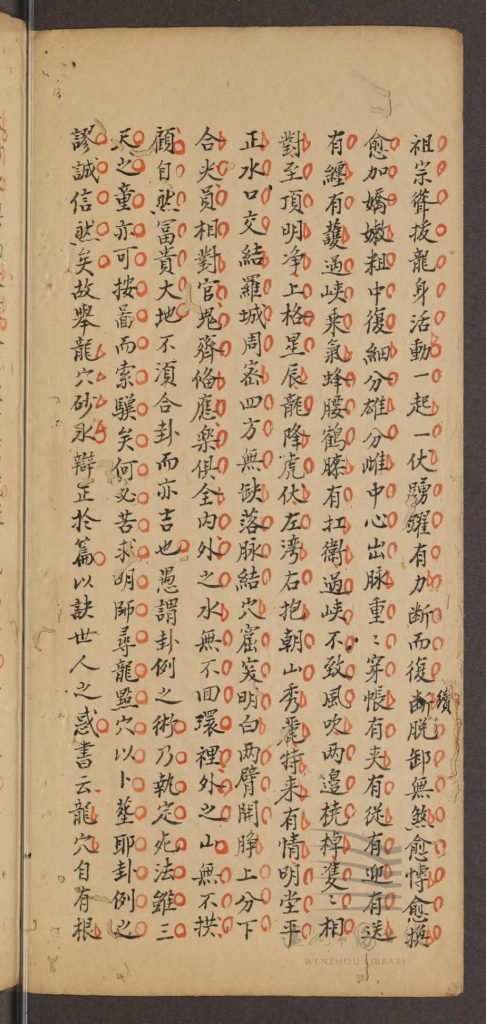 祖宗聳拔龍身活動一起一伏踴躍有力断而復断續脱卸無煞愈慱愈換
愈加嬌嫩粗中復細分雄分雌中心出脉重〻穿帳有夹有從有迎有送
有纏有護過峡乗氣蜂腰鶴膝有扛衛過峡不致風吹两邉梹棹隻〻相
對至頂明净上格星辰龍降虎伏左湾右抱朝山秀麗特来有情明堂平
正水口交結羅城周宻四方無缺落脉結穴窟突明白两臂開睁上分下
合尖員相對官鬼齊俻應楽俱全内外之水無不回環裡外之山無不拱
顧自然富貴大地不湏合卦而亦吉也愚謂卦例之術乃執定死法雖三
尺之童亦可按啚而索驥矣何必苦求明師尋龍㸃穴以卜塟耶卦例之
謬誠信然矣故舉龍穴砂水辯正於篇以訣世人之惑書云龍穴自有根
WENZHOU LIBRARY